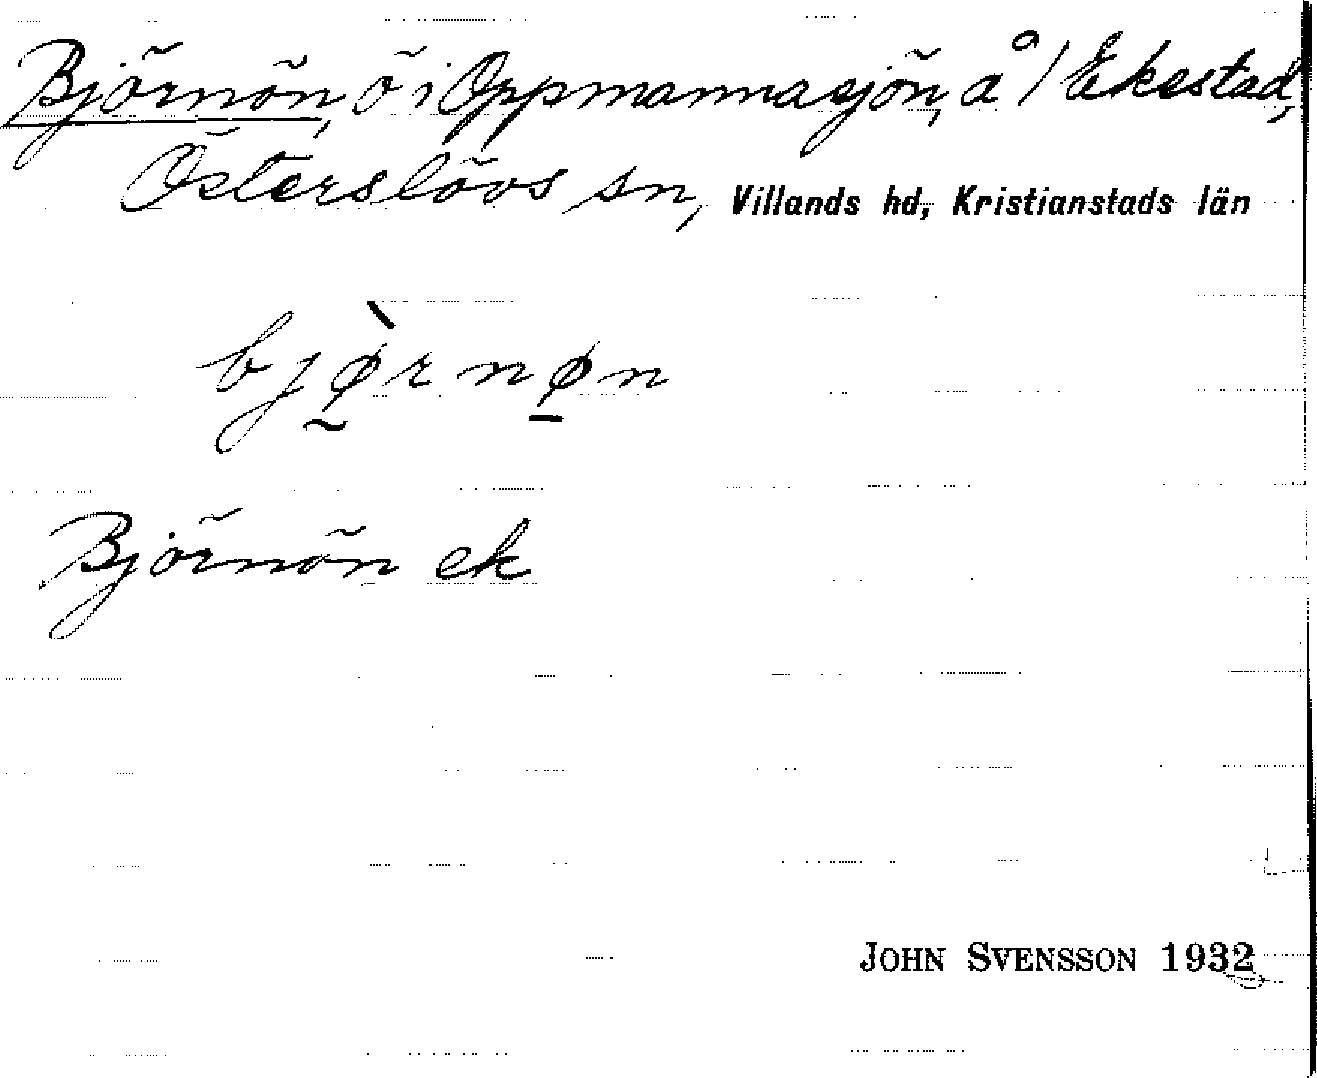 Björnön, ö i Oppmannasjön, å 1 Ekestad,
Österslövs sn, Villands hd, Kristianstads län
bjørnøn
Björnön ek
JOHN SVENSSON 1932